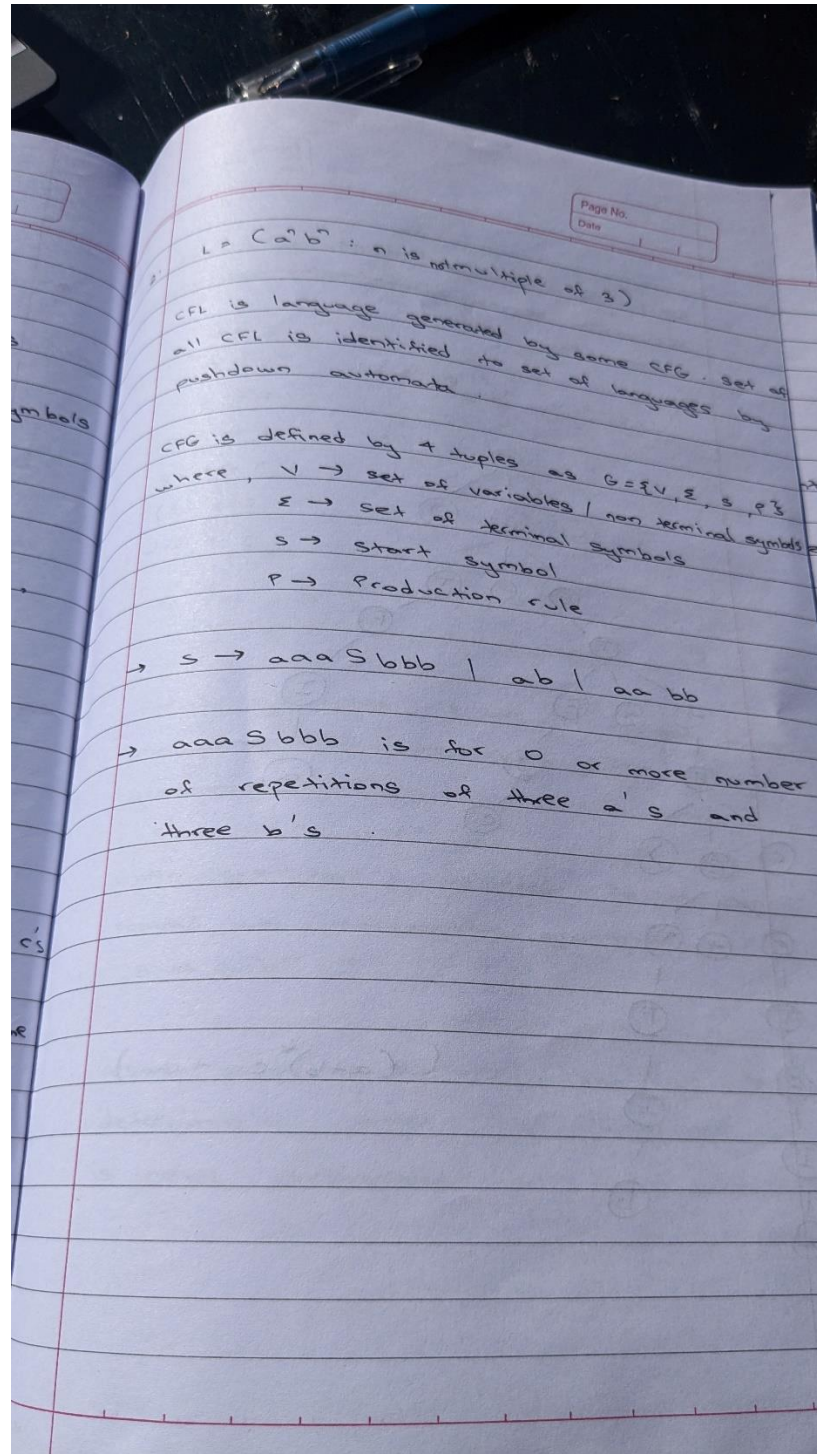 mbols
c's
Page No.
Date
2. L = (aⁿ bⁿ : n is notmultiple of 3)
CFL is language generated by some CFG. set of
all CFL is identified to set of languages by
pushdown automata.
CFG is defined by 4 tuples as G = {V, Σ, S, P}
where, V → set of variables / non terminal symbols
Σ → set of terminal symbols
S → start symbol
P → Production rule
→ S → aaa S bbb | ab | aa bb
→ aaa S bbb is for 0 or more number
of repetitions of three a's and
three b's.